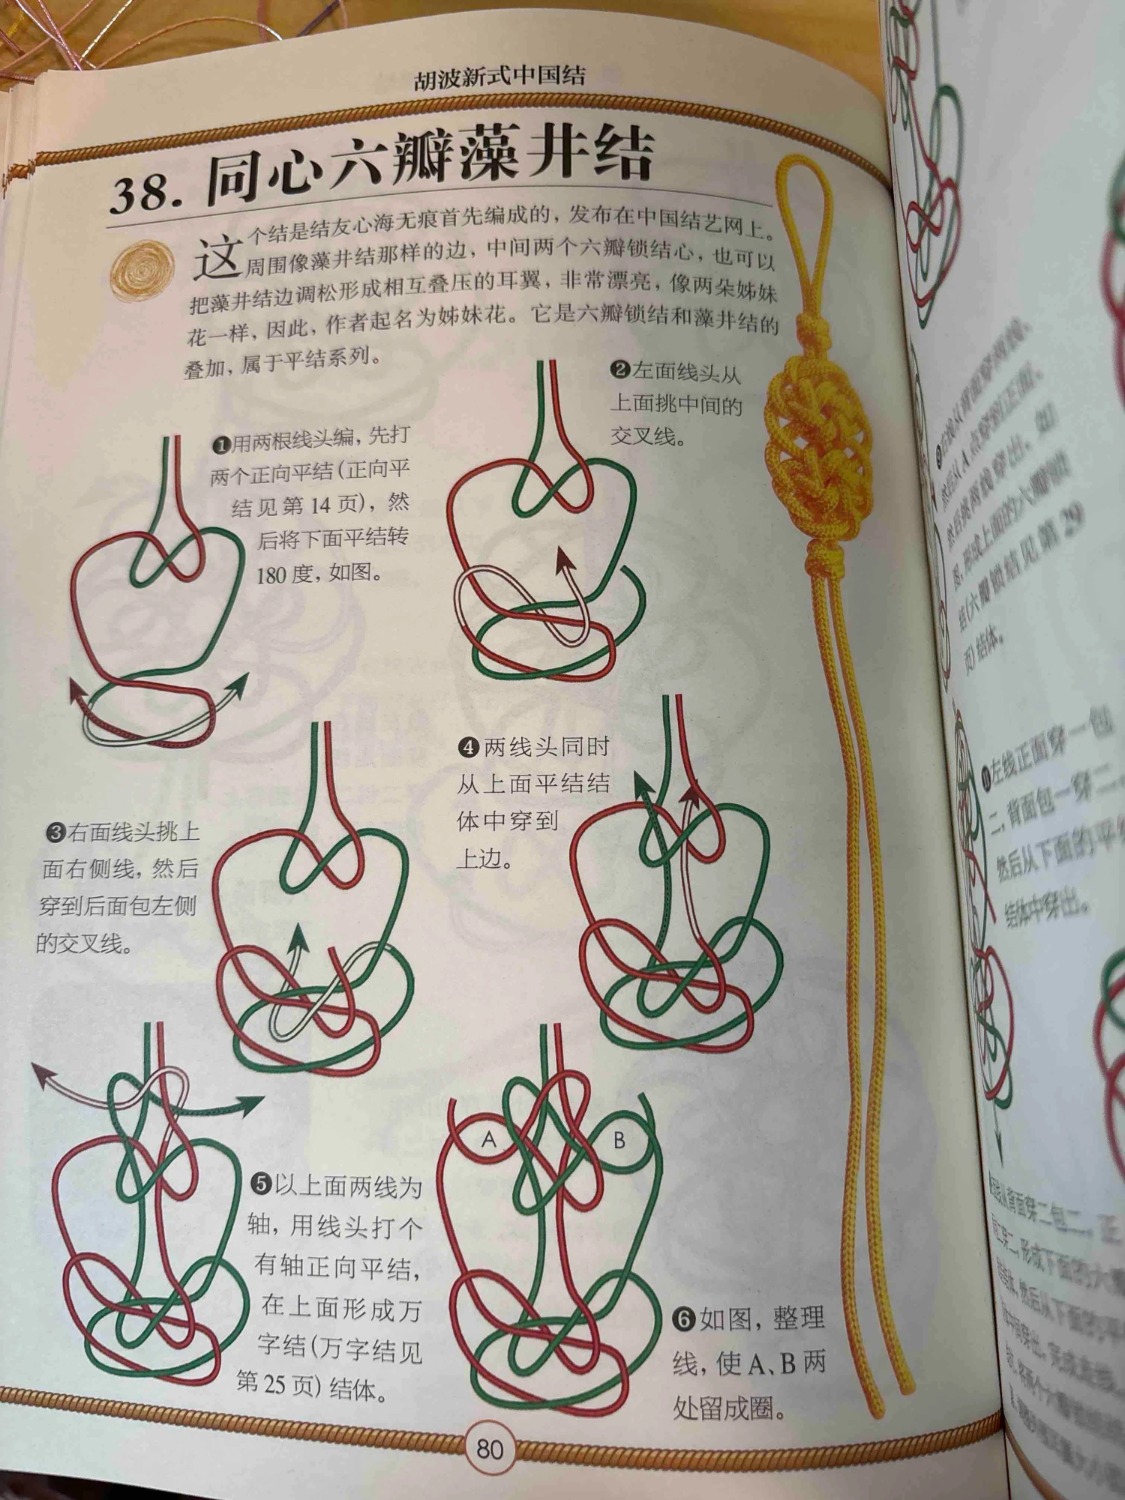 胡波新式中国结
38. 同心六瓣藻井结
这个结是结友心海无痕首先编成的，发布在中国结艺网上。
周围像藻井结那样的边，中间两个六瓣锁结心，也可以
把藻井结边调松形成相互叠压的耳翼，非常漂亮，像两朵姊妹
花一样，因此，作者起名为姊妹花。它是六瓣锁结和藻井结的
叠加，属于平结系列。
❶用两根线头编，先打
两个正向平结（正向平
结见第14页），然
后将下面平结转
180度，如图。
❷左面线头从
上面挑中间的
交叉线。
❸右面线头挑上
面右侧线，然后
穿到后面包左侧
的交叉线。
❹两线头同时
从上面平结结
体中穿到
上边。
❺以上面两线为
轴，用线头打个
有轴正向平结，
在上面形成万
字结（万字结见
第25页）结体。
A
B
❻如图，整理
线，使A、B两
处留成圈。
80
结（六瓣锁结见第29
页）结体。
左线正面穿一包
二，背面包一穿二，
然后从下面的平
结体中穿出。